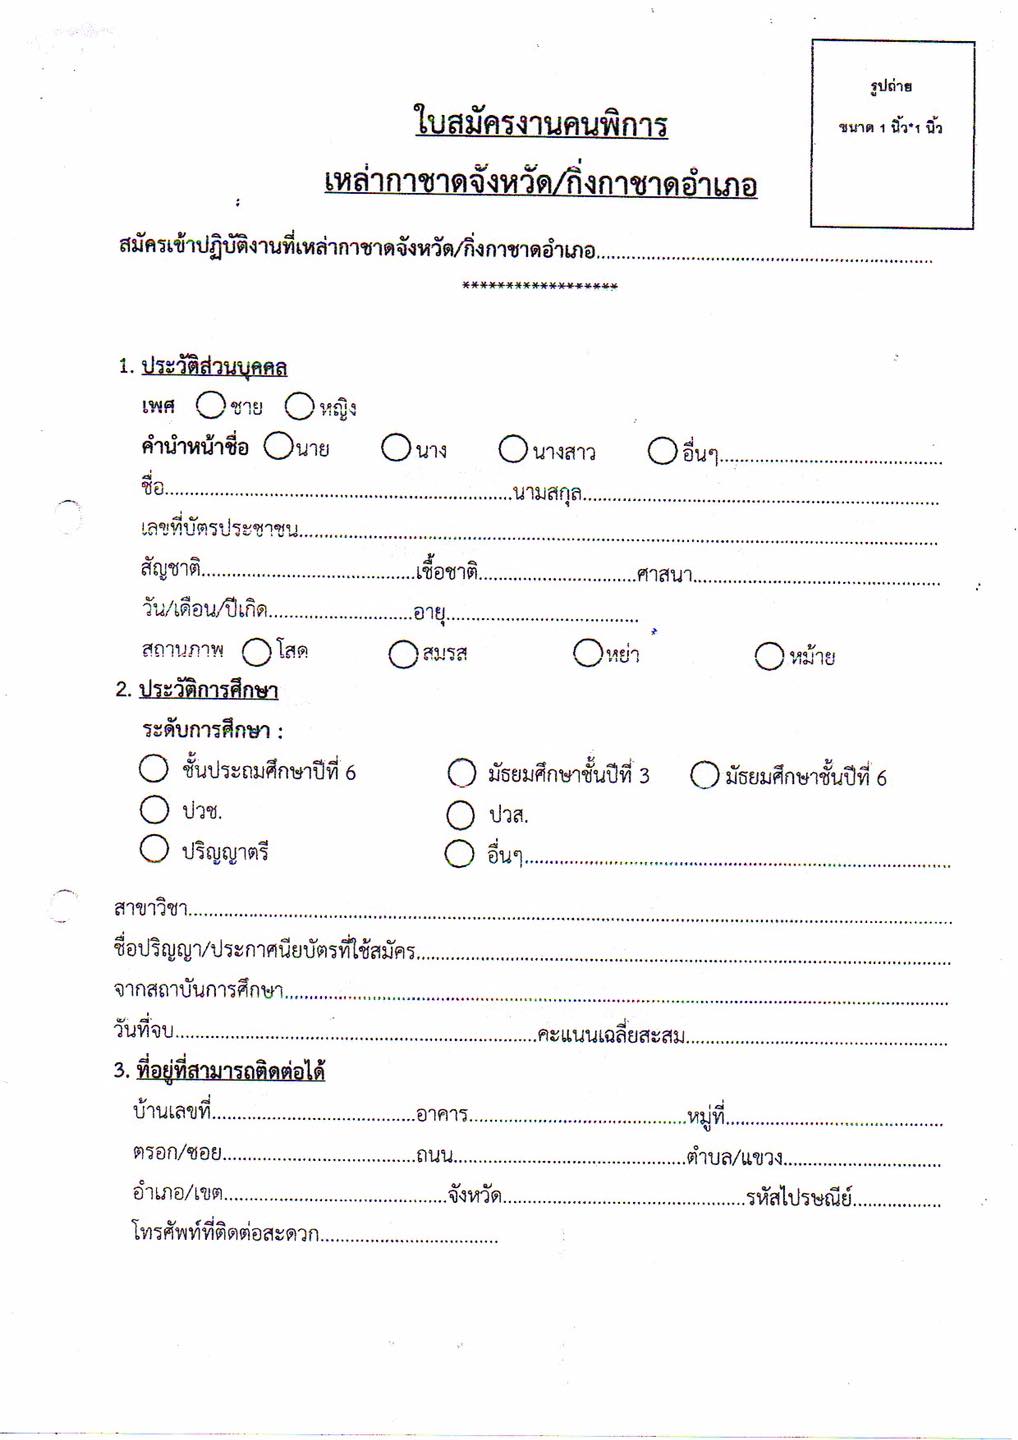 รูปถ่าย
ขนาด 1 นิ้ว*1 นิ้ว
ใบสมัครงานคนพิการ
เหล่ากาชาดจังหวัด/กิ่งกาชาดอำเภอ
สมัครเข้าปฏิบัติงานที่เหล่ากาชาดจังหวัด/กิ่งกาชาดอำเภอ......................................................................
******************
1. ประวัติส่วนบุคคล
เพศ ชาย หญิง
คำนำหน้าชื่อ นาย นาง นางสาว อื่นๆ..............................................
ชื่อ........................................................................นามสกุล..........................................................................
เลขที่บัตรประชาชน....................................................................................................................................
สัญชาติ............................................เชื้อชาติ.................................ศาสนา...................................................
วัน/เดือน/ปีเกิด..............................อายุ........................................
สถานภาพ โสด สมรส หย่า หม้าย
2. ประวัติการศึกษา
ระดับการศึกษา :
ชั้นประถมศึกษาปีที่ 6 มัธยมศึกษาชั้นปีที่ 3 มัธยมศึกษาชั้นปีที่ 6
ปวช. ปวส.
ปริญญาตรี อื่นๆ........................................................................................
สาขาวิชา..............................................................................................................................................................
ชื่อปริญญา/ประกาศนียบัตรที่ใช้สมัคร...............................................................................................................
จากสถาบันการศึกษา.........................................................................................................................................
วันที่จบ...........................................................................คะแนนเฉลี่ยสะสม......................................................
3. ที่อยู่ที่สามารถติดต่อได้
บ้านเลขที่..........................................อาคาร.............................................หมู่ที่.............................................
ตรอก/ซอย........................................ถนน................................................ตำบล/แขวง.................................
อำเภอ/เขต..............................................จังหวัด..................................................รหัสไปรษณีย์..................
โทรศัพท์ที่ติดต่อสะดวก.....................................